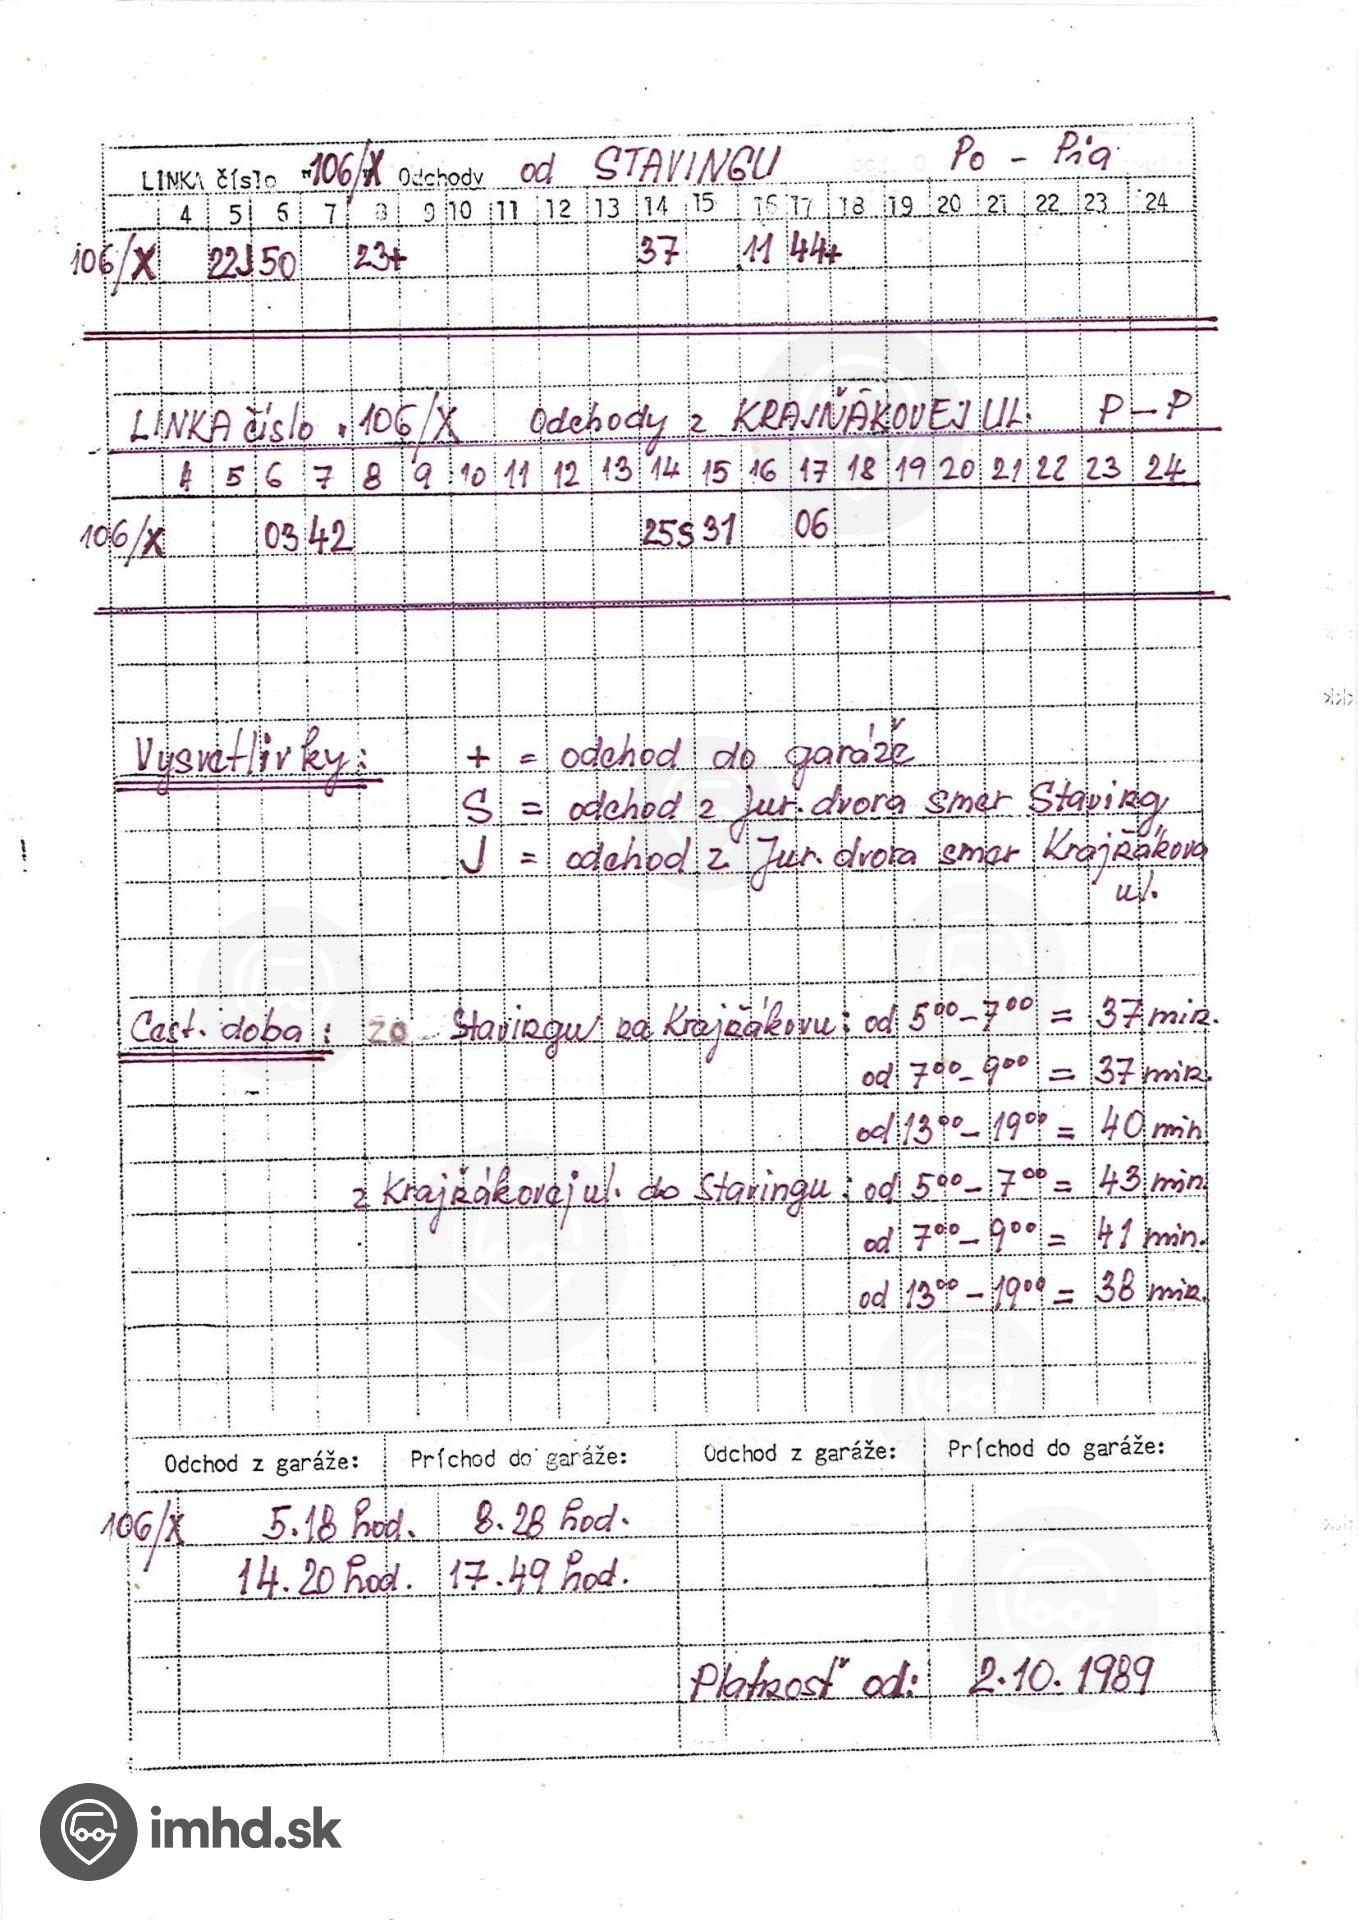 LINKA číslo "106/X Odchody od STAVINGU Po - Pia
4 5 6 7 8 9 10 11 12 13 14 15 16 17 18 19 20 21 22 23 24
106/X 22J 50 23+ 37 11 44+
LINKA číslo . 106/X Odchody z KRAJŇÁKOVEJ UL. P-P
4 5 6 7 8 9 10 11 12 13 14 15 16 17 18 19 20 21 22 23 24
106/X 03 42 25S 31 06
Vysvetlivky: + = odchod do garáže
S = odchod z Jur. dvora smer Staving
J = odchod z Jur. dvora smer Krajňákova
ul.
Cest. doba: zo Stavingu na Krajňákovu: od 5⁰⁰-7⁰⁰ = 37 min.
od 7⁰⁰-9⁰⁰ = 37 min.
od 13⁰⁰-19⁰⁰ = 40 min
z Krajňákovej ul. do Stavingu: od 5⁰⁰-7⁰⁰ = 43 min.
od 7⁰⁰-9⁰⁰ = 41 min.
od 13⁰⁰-19⁰⁰ = 38 min.
Odchod z garáže: Príchod do garáže: Odchod z garáže: Príchod do garáže:
106/X 5.18 hod. 8.28 hod.
14.20 hod. 17.49 hod.
Platnosť od: 2.10.1989
imhd.sk